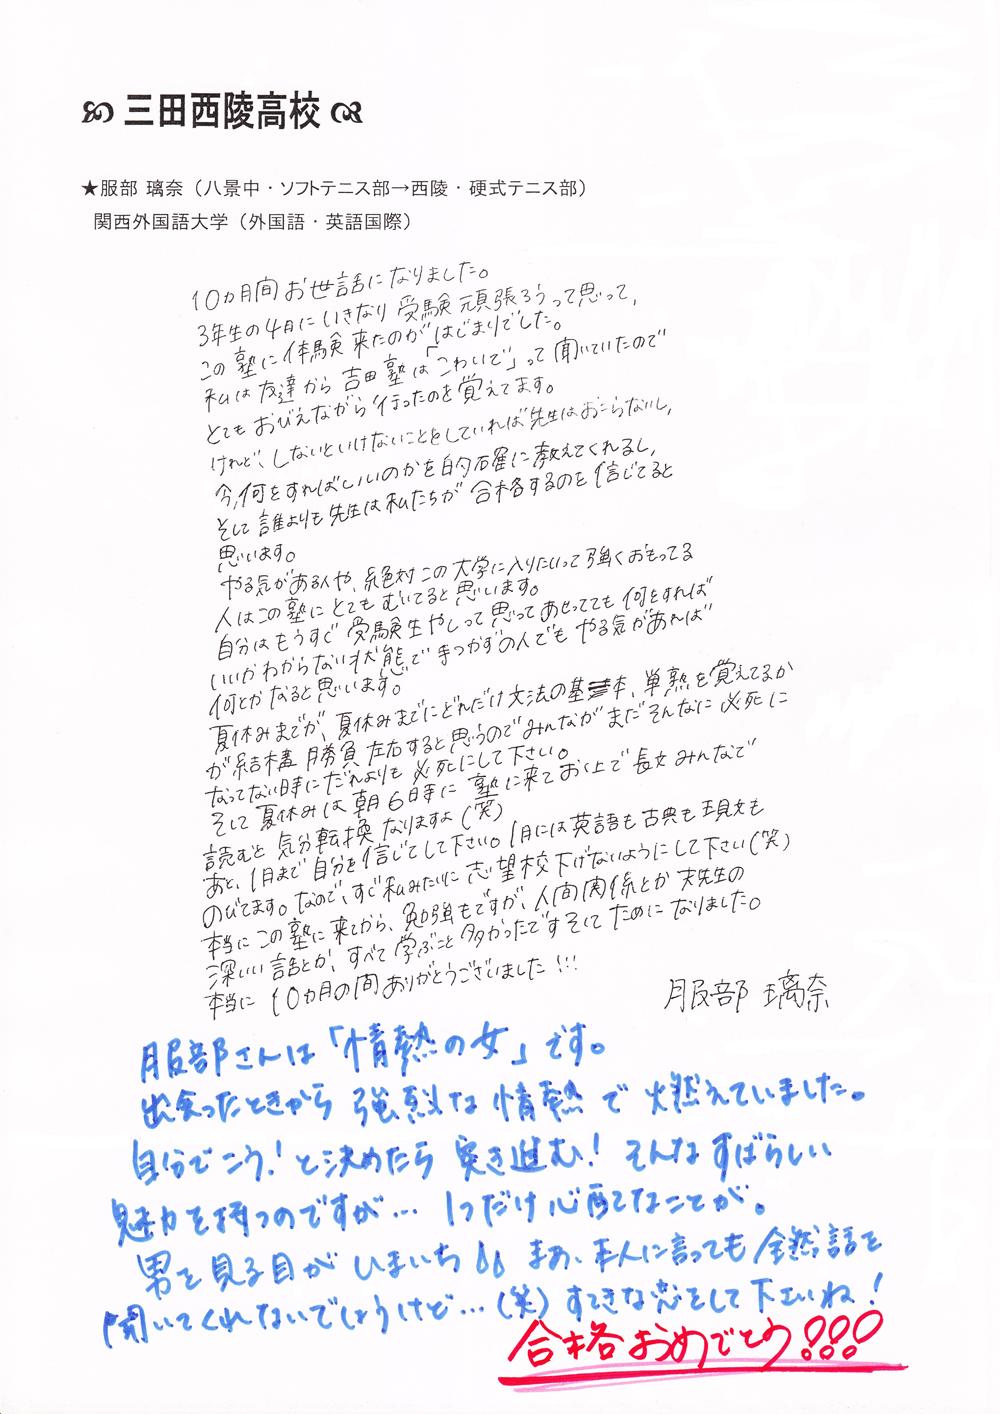 三田西陵高校
★服部 璃奈（八景中・ソフトテニス部→西陵・硬式テニス部）
関西外国語大学（外国語・英語国際）
10カ月間お世話になりました。
3年生の4月にいきなり受験頑張ろうって思って、
この塾に体験来たのがはじまりでした。
私は友達から吉田塾は「こわいで」って聞いていたので
とてもおびえながら行ったのを覚えてます。
けれど、しないといけないことをしていれば先生はおこらないし、
今、何をすればいいのかを的確に教えてくれるし、
そして誰よりも先生は私たちが合格するのを信じてると
思います。
やる気がある人や、絶対この大学に入りたいって強くおもってる
人はこの塾にとてもむいてると思います。
自分はもうすぐ受験生やしって思ってあせってても何をすれば
いいかわからない状態で手つかずの人でもやる気があれば
何とかなると思います。
夏休みまでが、夏休みまでにどれだけ文法の基本、単熟を覚えてるか
が結構勝負左右すると思うのでみんながまだそんなに必死に
なってない時にだれよりも必死にして下さい。
そして夏休みは朝6時に塾に来ておく上で長文みんなで
読むと気分転換なりますよ(笑)
あと、1月まで自分を信じてして下さい。1月には英語も古典も現文も
のびてます。なので、すぐ私みたいに志望校下げないようにして下さい(笑)
本当にこの塾に来てから、勉強もですが、人間関係とか先生の
深いい話とか、すべて学ぶこと多かったですそしてためになりました。
本当に10カ月の間ありがとうございました!!!
服部 璃奈
服部さんは「情熱の女」です。
出会ったときから強烈な情熱で燃えていました。
自分でこう!と決めたら突き進む!そんなすばらしい
魅力を持つのですが…1つだけ心配なことが。
男を見る目がいまいち まあ、本人に言っても全然話を
聞いてくれないでしょうけど…(笑)すてきな恋をして下さいね!
合格おめでとう!!!